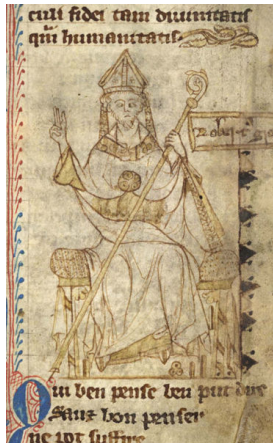 culi fidei tam diuinitatis
qui humanitatis
Robert g
Qui ben pense ben put dire
Sanz bon penser
ne pot suffire